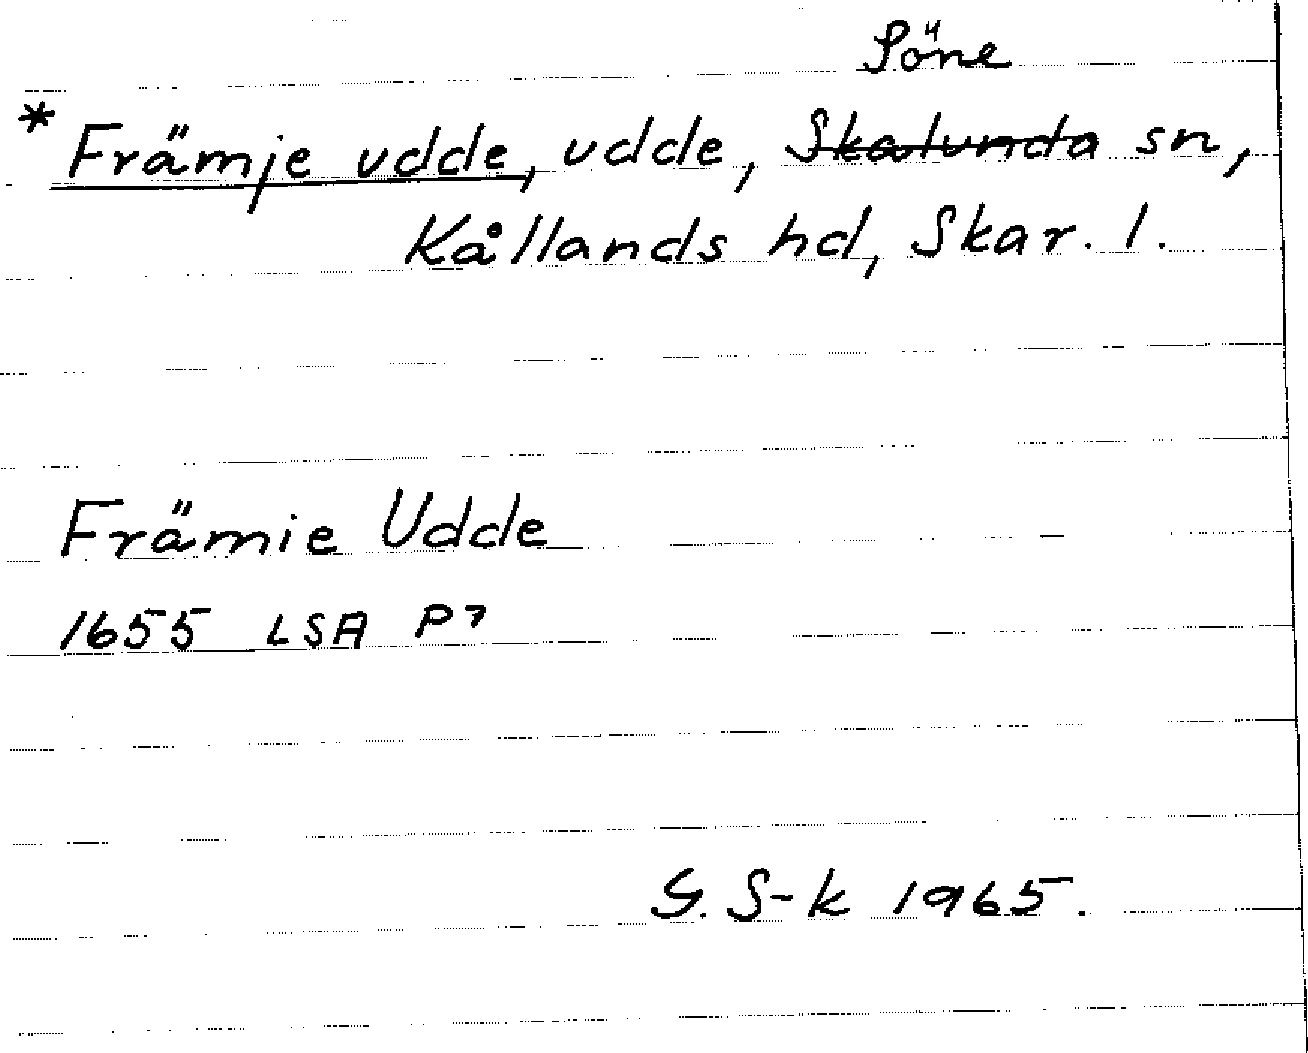 Söne
*Främje udde, udde, Skalunda sn,
Kållands hd, Skar. l.
Främie Udde
1655 LSA P7
G. S-k 1965.